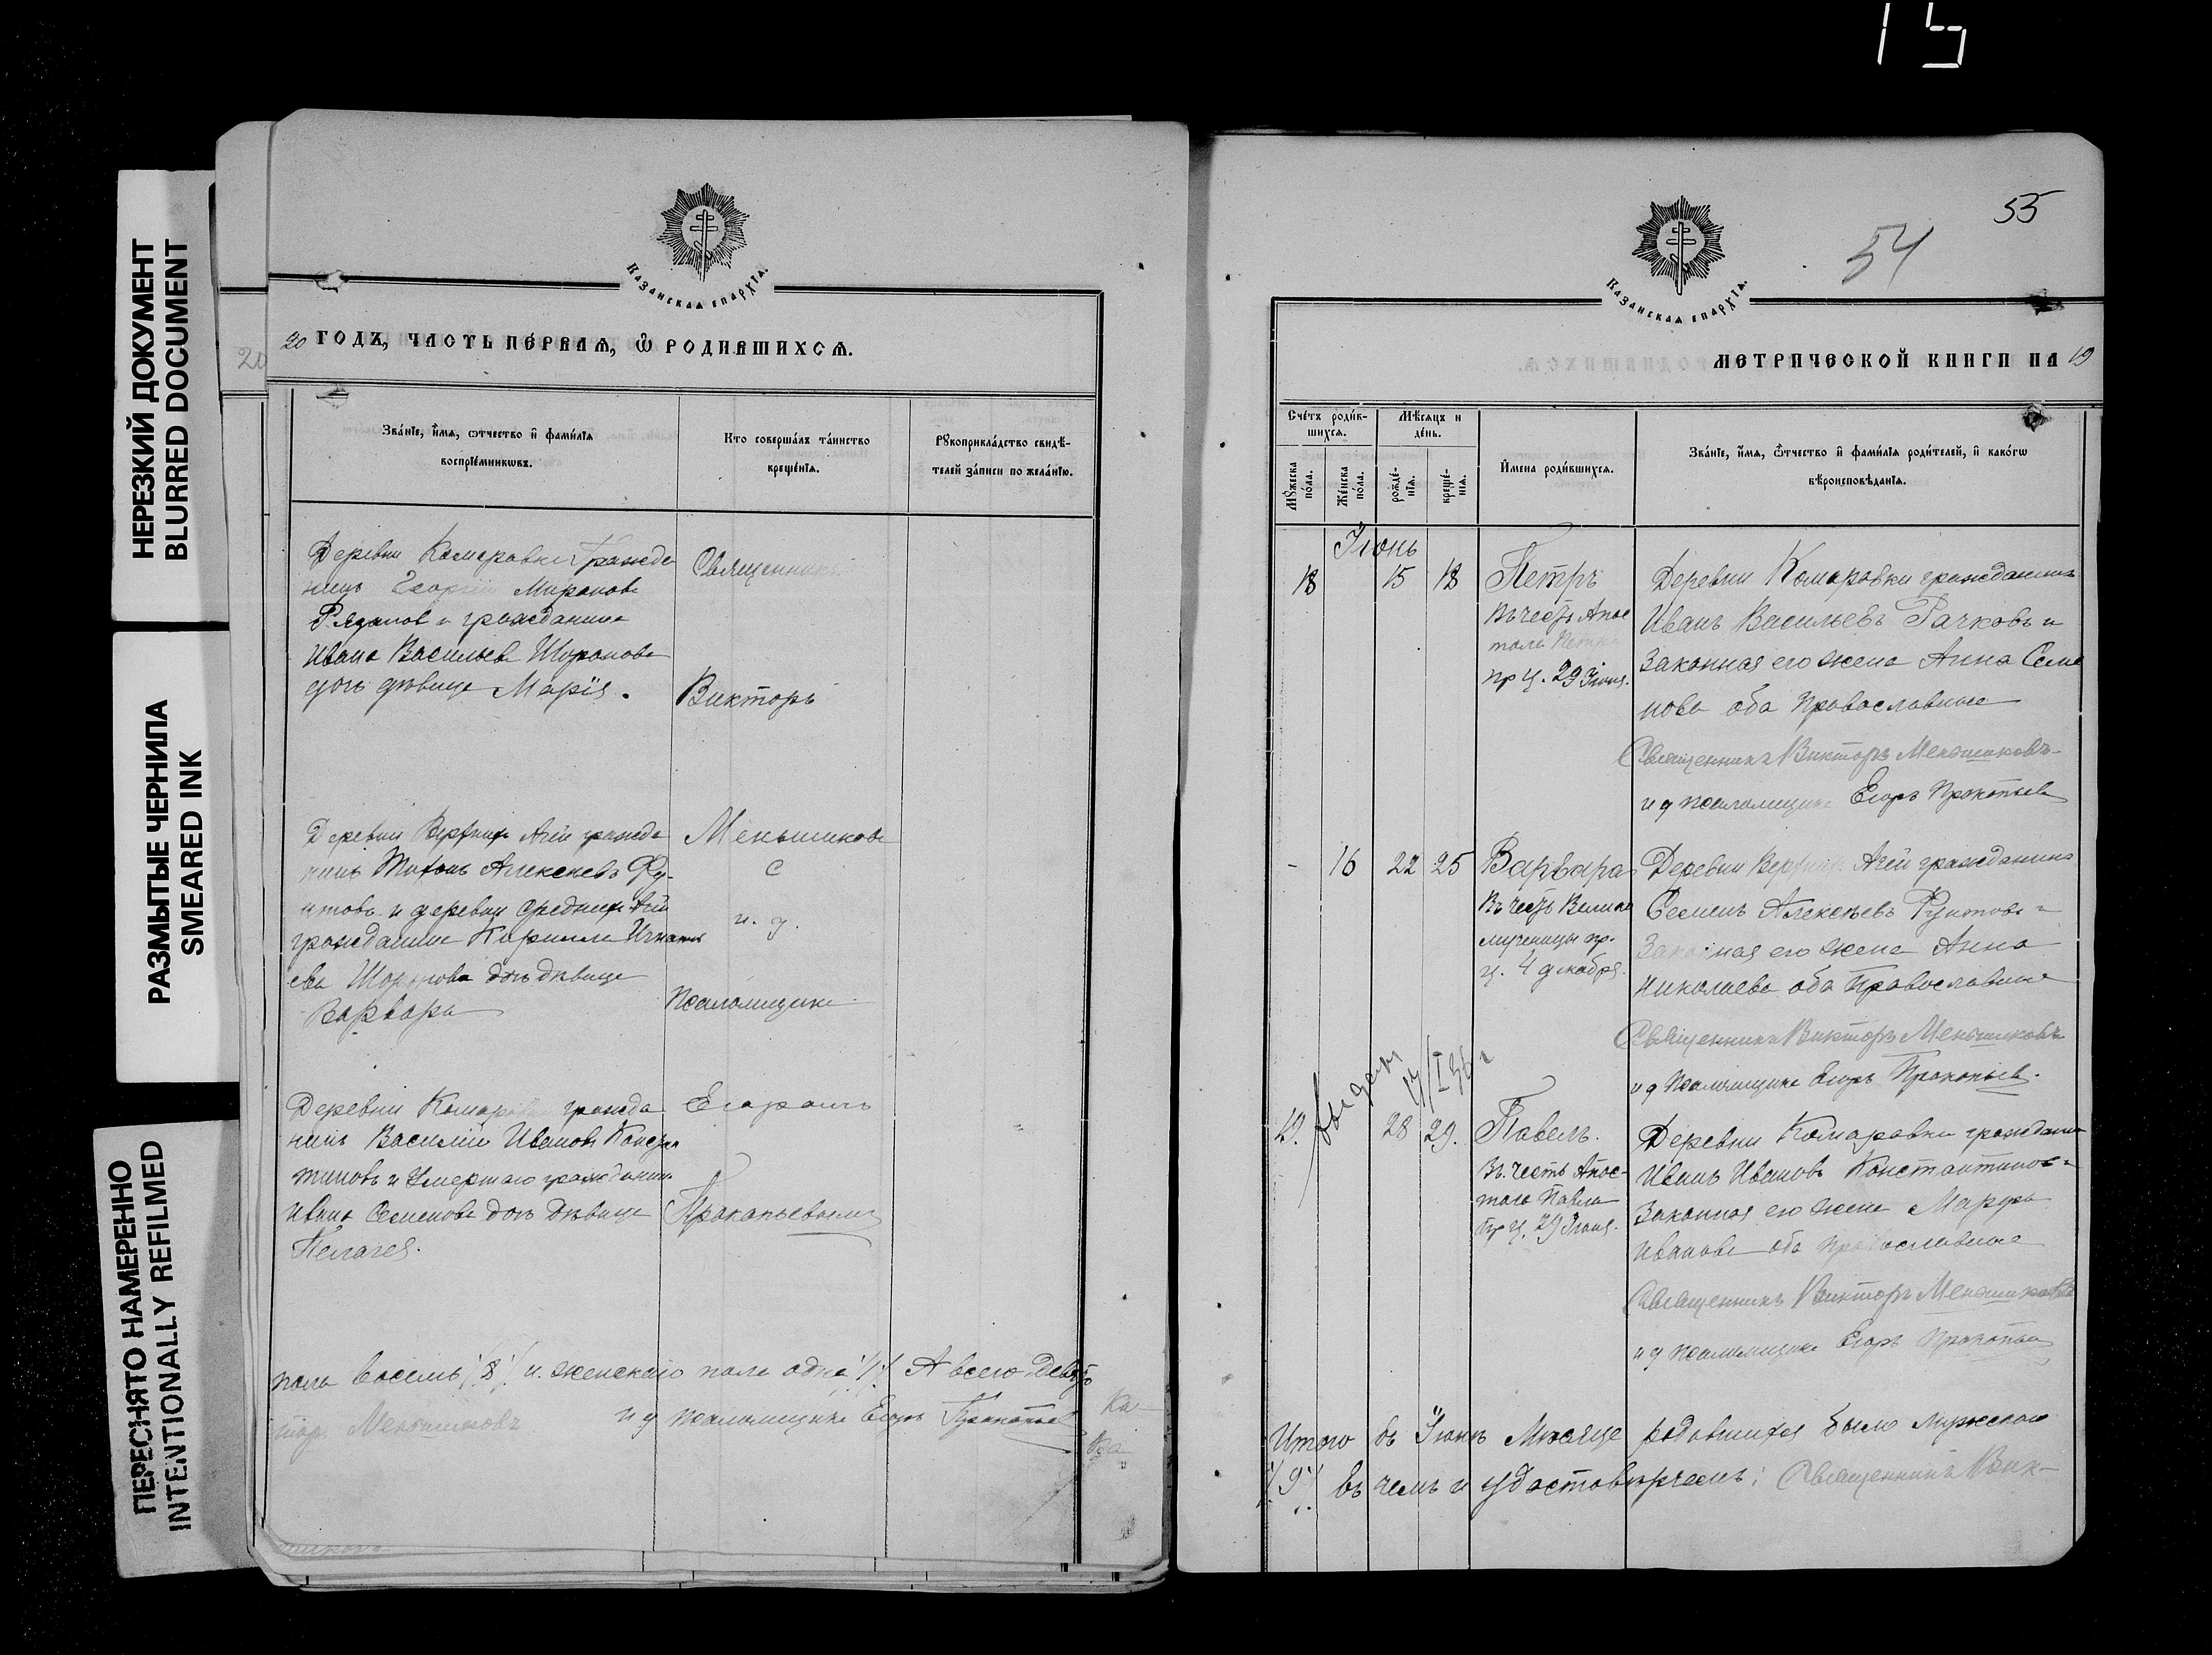 15
НЕРЕЗКИЙ ДОКУМЕНТ
BLURRED DOCUMENT
РАЗМЫТЫЕ ЧЕРНИЛА
SMEARED INK
ПЕРЕСНЯТО НАМЕРЕННО
INTENTIONALLY REFILMED
20
Казанская епархїа.
20 годъ, часть пе́рвая, ѿ родившихся.
Зва́нїе, и́мя, ѻтчество и҆ фами́лїя
воспрїе́мниковъ.
Кто соверша́лъ та́инство
креще́нїя.
Рꙋкоприкла́дство свидѣ́-
телей за́писи по жела́нїю.
Деревни Комаровки гражда
нинъ Георгій Мироновъ
Рязанов и гражданина
Ивана Васильева
дочь дѣвица Марія.
Священникъ
Викторъ
Деревни Верхних Ачей гражда
нинъ Тихонъ Алексеевъ
и деревни Средних Ачей
гражданина Кирилла Игнать
ева дочь дѣвица
Варвара
Меньшиковъ
с
и. д.
Псаломщика
Деревни Комаровки гражда
нинъ Василий Ивановъ Конста
тиновъ и умершаго гражданина
Ивана Семенова дочь дѣвица
Пелагея.
Егоромъ
Прокопьевымъ
пола восемь /8/ и женскаго пола одна /1/ А всего девять
торъ Меньшиковъ и д псаломщика Егоръ Прокопьев
55
54
Казанская епархїа.
метрической книги на 19
Сче́тъ роди́в-
шихся.
Мѣ́сяцъ и
де́нь.
И҆мена роди́вшихся.
Зва́нїе, и҆́мя, ѻ҆́тчество и҆ фами́лїя роди́телей, и҆ како́гѡ
вѣроисповѣ́данїя.
Мꙋ́жеска по́ла.
Же́нска по́ла.
рожде́-нїя.
креще́-нїя.
Іюнь
18 15 18 Петръ
Въ честь Апос
тола Петра
пр ц. 29 Іюня.
Деревни Комаровки гражданинъ
Иванъ Васильевъ Рачковъ и
Законная его жена Анна Семе
нова оба Православные
Священникъ Викторъ Меньшиковъ
и д псаломщика Егоръ Прокопьев
- 16 22 25 Варвара
Въ честь Велико
мученицы пр.
ц. 4 декабря.
Деревни Верхних Ачей гражданинъ
Семенъ Алексѣевъ и
Законная его жена Анна
Николаева оба Православные
Священникъ Викторъ Меньшиковъ
и д Псаломщика Егоръ Прокопьев.
выдан 17/I 36 г
19. 28 29. Павелъ.
Въ честь Апос-
тола Павла
пр ц. 29 Іюня.
Деревни Комаровки гражданин
Иванъ Ивановъ Константинов и
Законная его жена Марфа
Иванова оба православные
Священникъ Викторъ Меньшиковъ
и д псаломщика Егоръ Прокопьев
Итого въ Іюнѣ Мѣсяце родившихся было мужескаго
/9/ въ чемъ и удостовѣряемъ: Священникъ Вик-